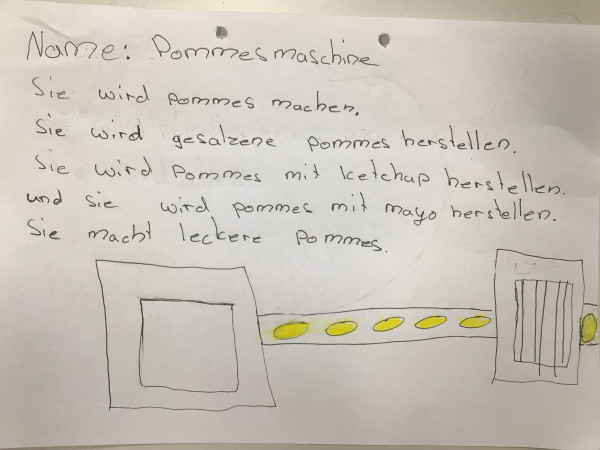 Name: Pommesmaschine
Sie wird pommes machen.
Sie wird gesalzene pommes herstellen.
Sie wird pommes mit ketchup herstellen.
und sie wird pommes mit mayo herstellen.
Sie macht leckere pommes.